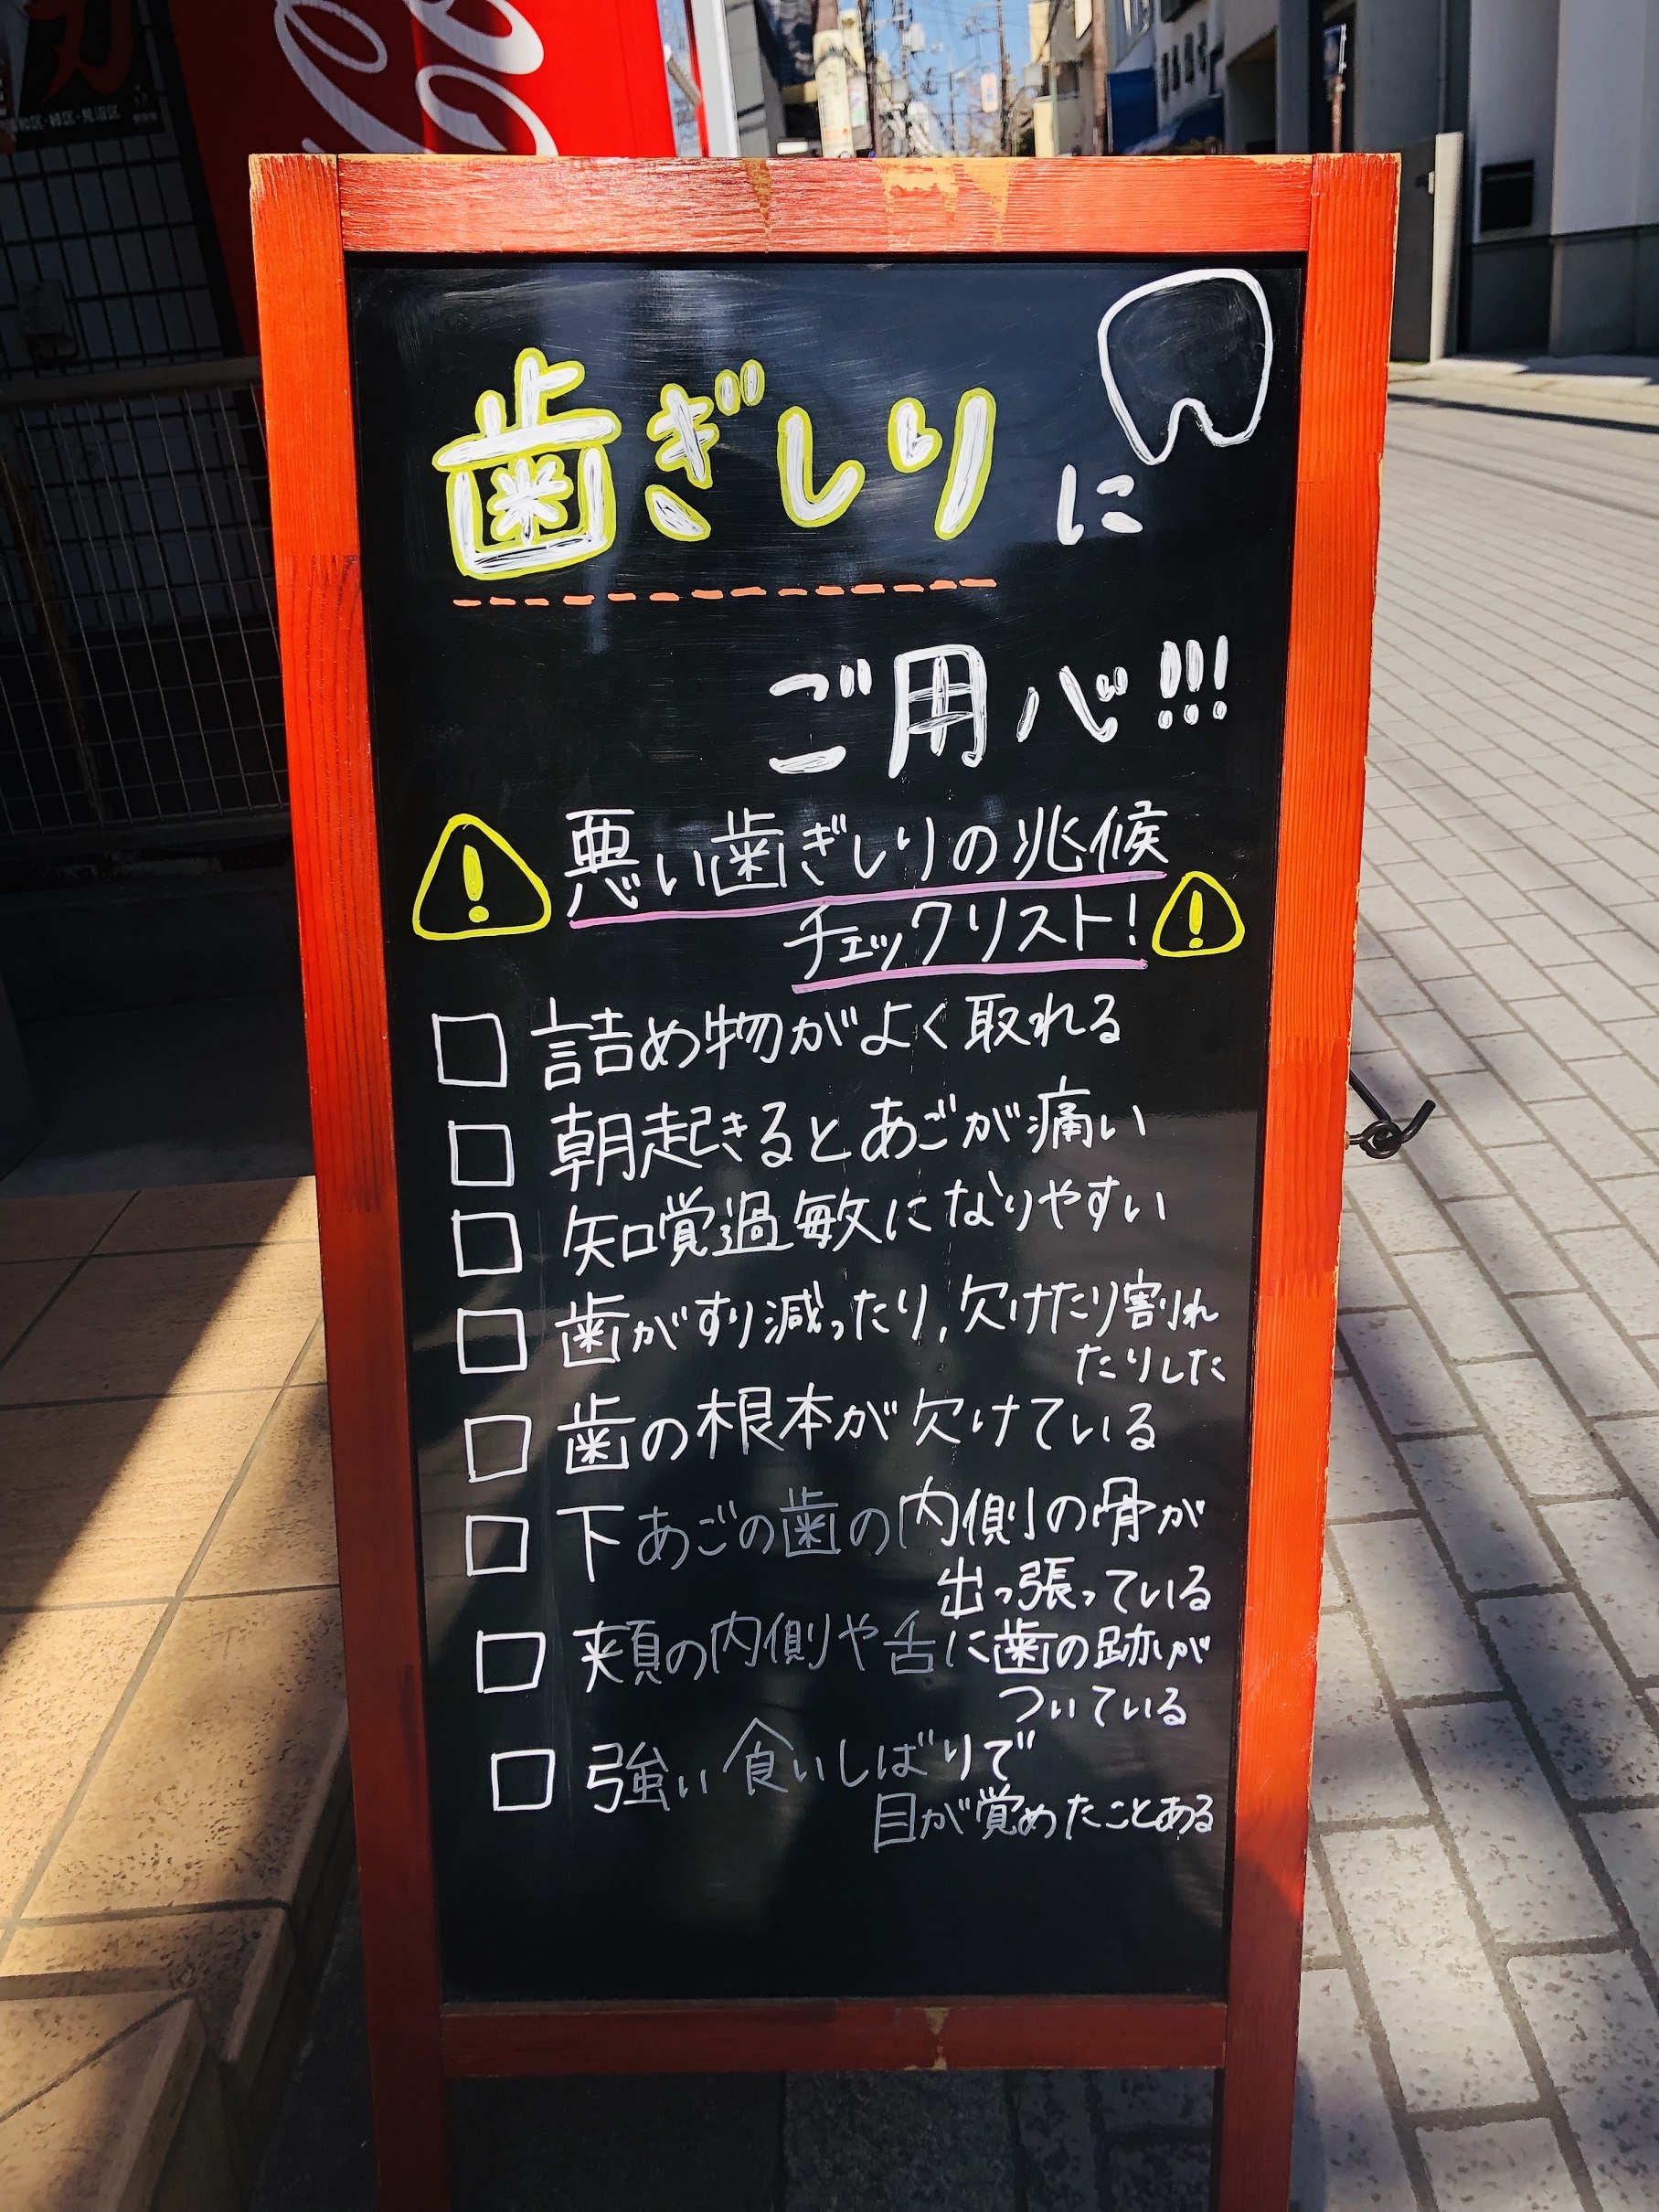 歯ぎしりに
ご用心!!!
悪い歯ぎしりの兆候
チェックリスト!
□ 詰め物がよく取れる
□ 朝起きるとあごが痛い
□ 知覚過敏になりやすい
□ 歯がすり減ったり、欠けたり割れ
たりした
□ 歯の根本が欠けている
□ 下あごの歯の内側の骨が
出っ張っている
□ 頬の内側や舌に歯の跡が
ついている
□ 強い食いしばりで
目が覚めたことある